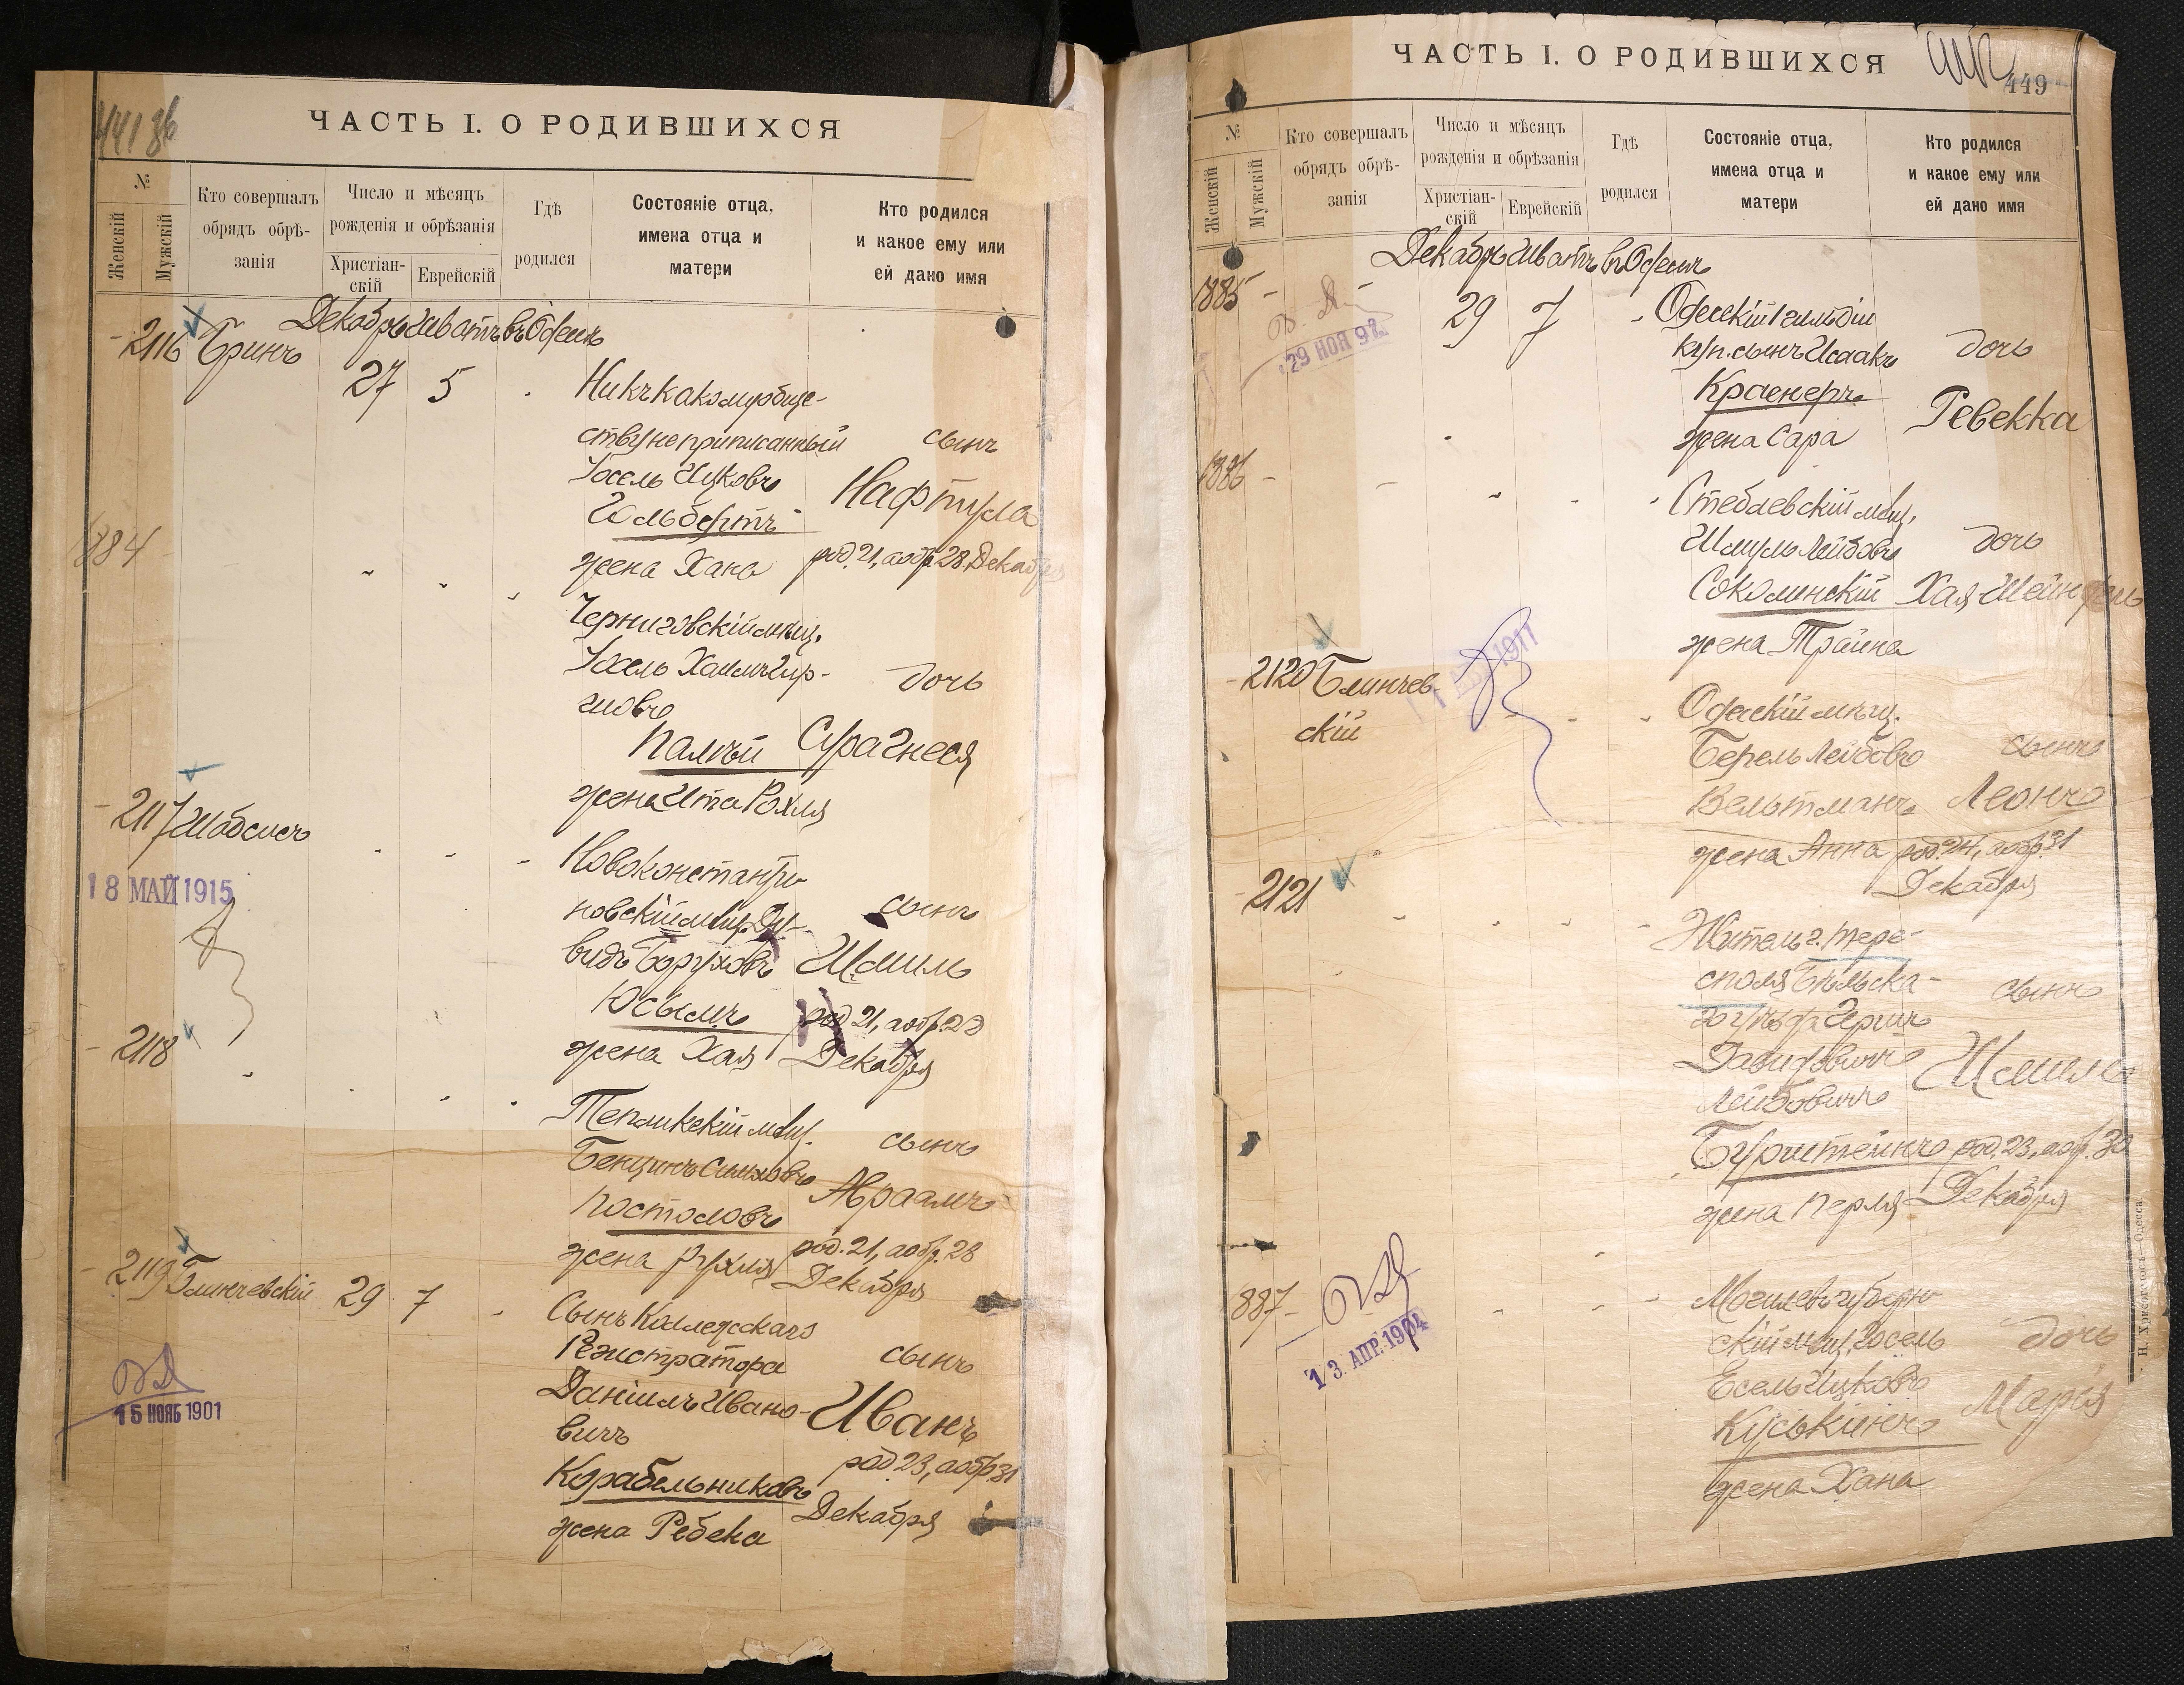 441 об
ЧАСТЬ I. О РОДИВШИХСЯ
№
Женскій
Мужскій
Кто совершалъ обрядъ обрѣ-занія
Число и мѣсяцъ рожденія и обрѣзанія
Христіан-скій
Еврейскій
Гдѣ родился
Состояніе отца, имена отца и матери
Кто родился и какое ему или ей дано имя
Декабрь Шватъ въ Одессѣ
2116 Бринъ
27 5
Ни къ какому обще-
ству не приписанный сынъ
Іосель Ицковъ Нафтула
Гольбертъ
жена Хана род. 21, а обр. 28 Декабря
1884
Черниговскій мѣщ.
Іосель Хаимъ Гир-
шовъ дочь
Палѣй Сура Гнеся
жена Ита Рохля
2117 Шабсисъ
18 МАЙ 1915
Новоконстанти-
новскій мѣщ. Ду- сынъ
видъ Боруховъ Шмиль
Юсымъ род. 21, а обр. 28
жена Хая Декабря
2118
Тепликскій мѣщ. сынъ
Бенцинъ Симховъ Авраамъ
Постоловъ
жена Рухля род. 21, а обр. 28
Декабря
2119 Блинчевскій 29 7
Сынъ Коллежскаго
Регистратора сынъ
Даніилъ Ивано- Иванъ
вичъ
Корабельниковъ род. 23, а обр. 31
жена Ребека Декабря
15 НОЯБ 1901
ЧАСТЬ I. О РОДИВШИХСЯ
449
№
Женскій
Мужскій
Кто совершалъ обрядъ обрѣ-занія
Число и мѣсяцъ рожденія и обрѣзанія
Христіан-скій
Еврейскій
Гдѣ родился
Состояніе отца, имена отца и матери
Кто родился и какое ему или ей дано имя
Декабрь Шватъ въ Одессѣ
1885
29 НОЯ 92
29 7
Одесскій 1 гильдіи
куп. сынъ Исаакъ дочь
Краснеръ Ревекка
жена Сара
1886
Стеблевскій мѣщ.
Шмуль Лейбовъ дочь
Соколинскій Хая-Шейндель
жена Трайна
2120 Блинчев-
скій
1911
Одесскій мѣщ.
Берель Лейбовъ сынъ
Вельтманъ Леонъ
жена Анна род. 24, а обр. 31
Декабря
2121
Житель г. Тере-
споля Бѣльска- сынъ
го уѣзда Гершъ
Давидовичъ Шмиль
Лейбовичъ
Бурштейнъ род. 23, а обр. 30
жена Перля Декабря
1887
13 АПР. 1904
Могилевъ губерн-
скій мѣщ. Іосель дочь
Есель Ицковъ
Куськинъ Марія
жена Хана